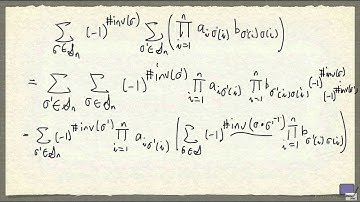 ∑_{σ∈S_n} (-1)^{#inv(σ)} ∑_{σ'∈S_n} (∏_{i=1}^{n} a_{iσ'(i)} b_{σ'(i)σ(i)})
= ∑_{σ'∈S_n} ∑_{σ∈S_n} (-1)^{#inv(σ')} ∏_{i=1}^{n} a_{iσ'(i)} ∏_{i=1}^{n} b_{σ'(i)σ(i)} (-1)^{#inv(σ)} (-1)^{#inv(σ')}
= ∑_{σ'∈S_n} (-1)^{#inv(σ')} ∏_{i=1}^{n} a_{iσ'(i)} (∑_{σ∈S} (-1)^{#inv(σ∘σ^{-1})} ∏_{i=1}^{n} b_{σ'(i)σ(i)})